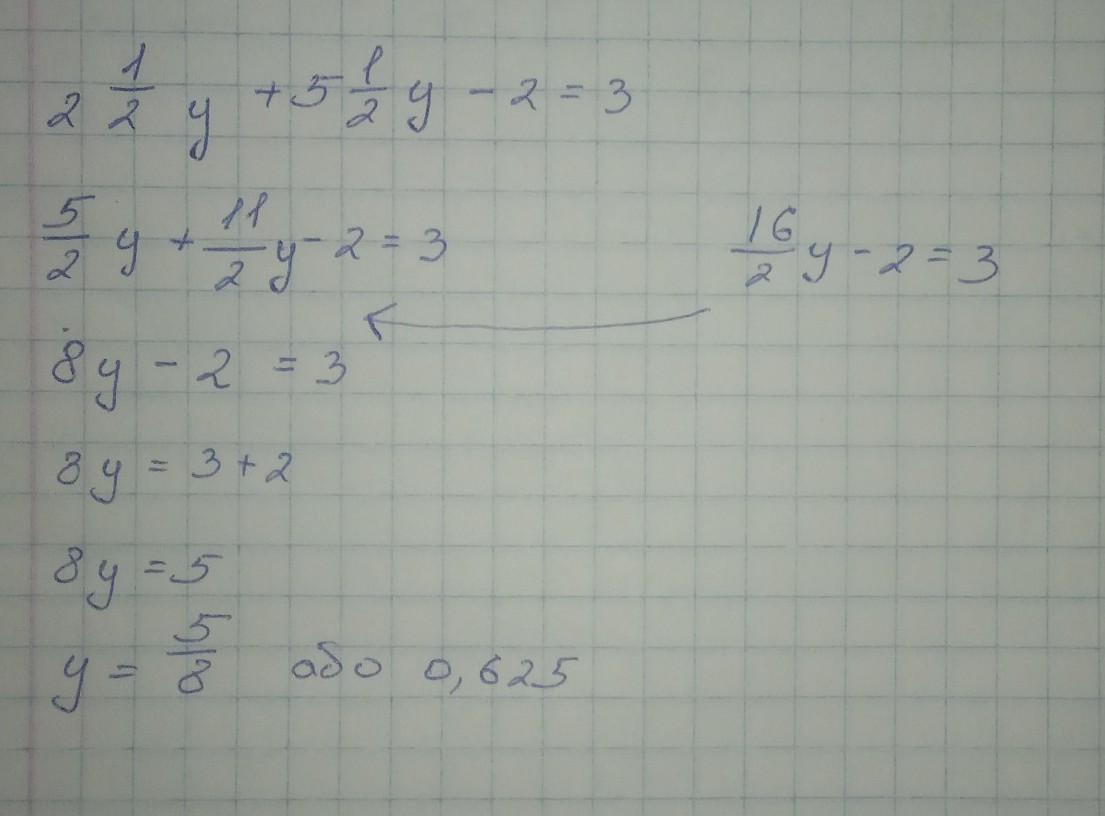 2 1/2 y + 5 1/2 y - 2 = 3
5/2 y + 11/2 y - 2 = 3
16/2 y - 2 = 3
8y - 2 = 3
8y = 3 + 2
8y = 5
y = 5/8 або 0,625